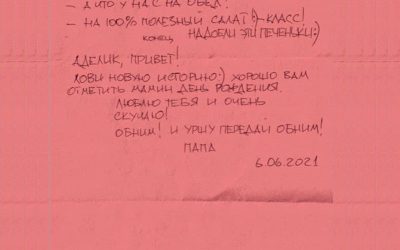 - А ЧТО У НАС НА ОБЕД?
- НА 100% ПОЛЕЗНЫЙ САЛАТ!)-КЛАСС!
КОНЕЦ НАДОЕЛИ ЭТИ ПЕЧЕНЬКИ:)
АДЕЛИК, ПРИВЕТ!
ЛОВИ НОВУЮ ИСТОРИЮ:) ХОРОШО ВАМ
ОТМЕТИТЬ МАМИН ДЕНЬ РОЖДЕНИЯ.
ЛЮБЛЮ ТЕБЯ И ОЧЕНЬ
СКУЧАЮ!
ОБНИМ! И УРШУ ПЕРЕДАЙ ОБНИМ!
ПАПА
6.06.2021